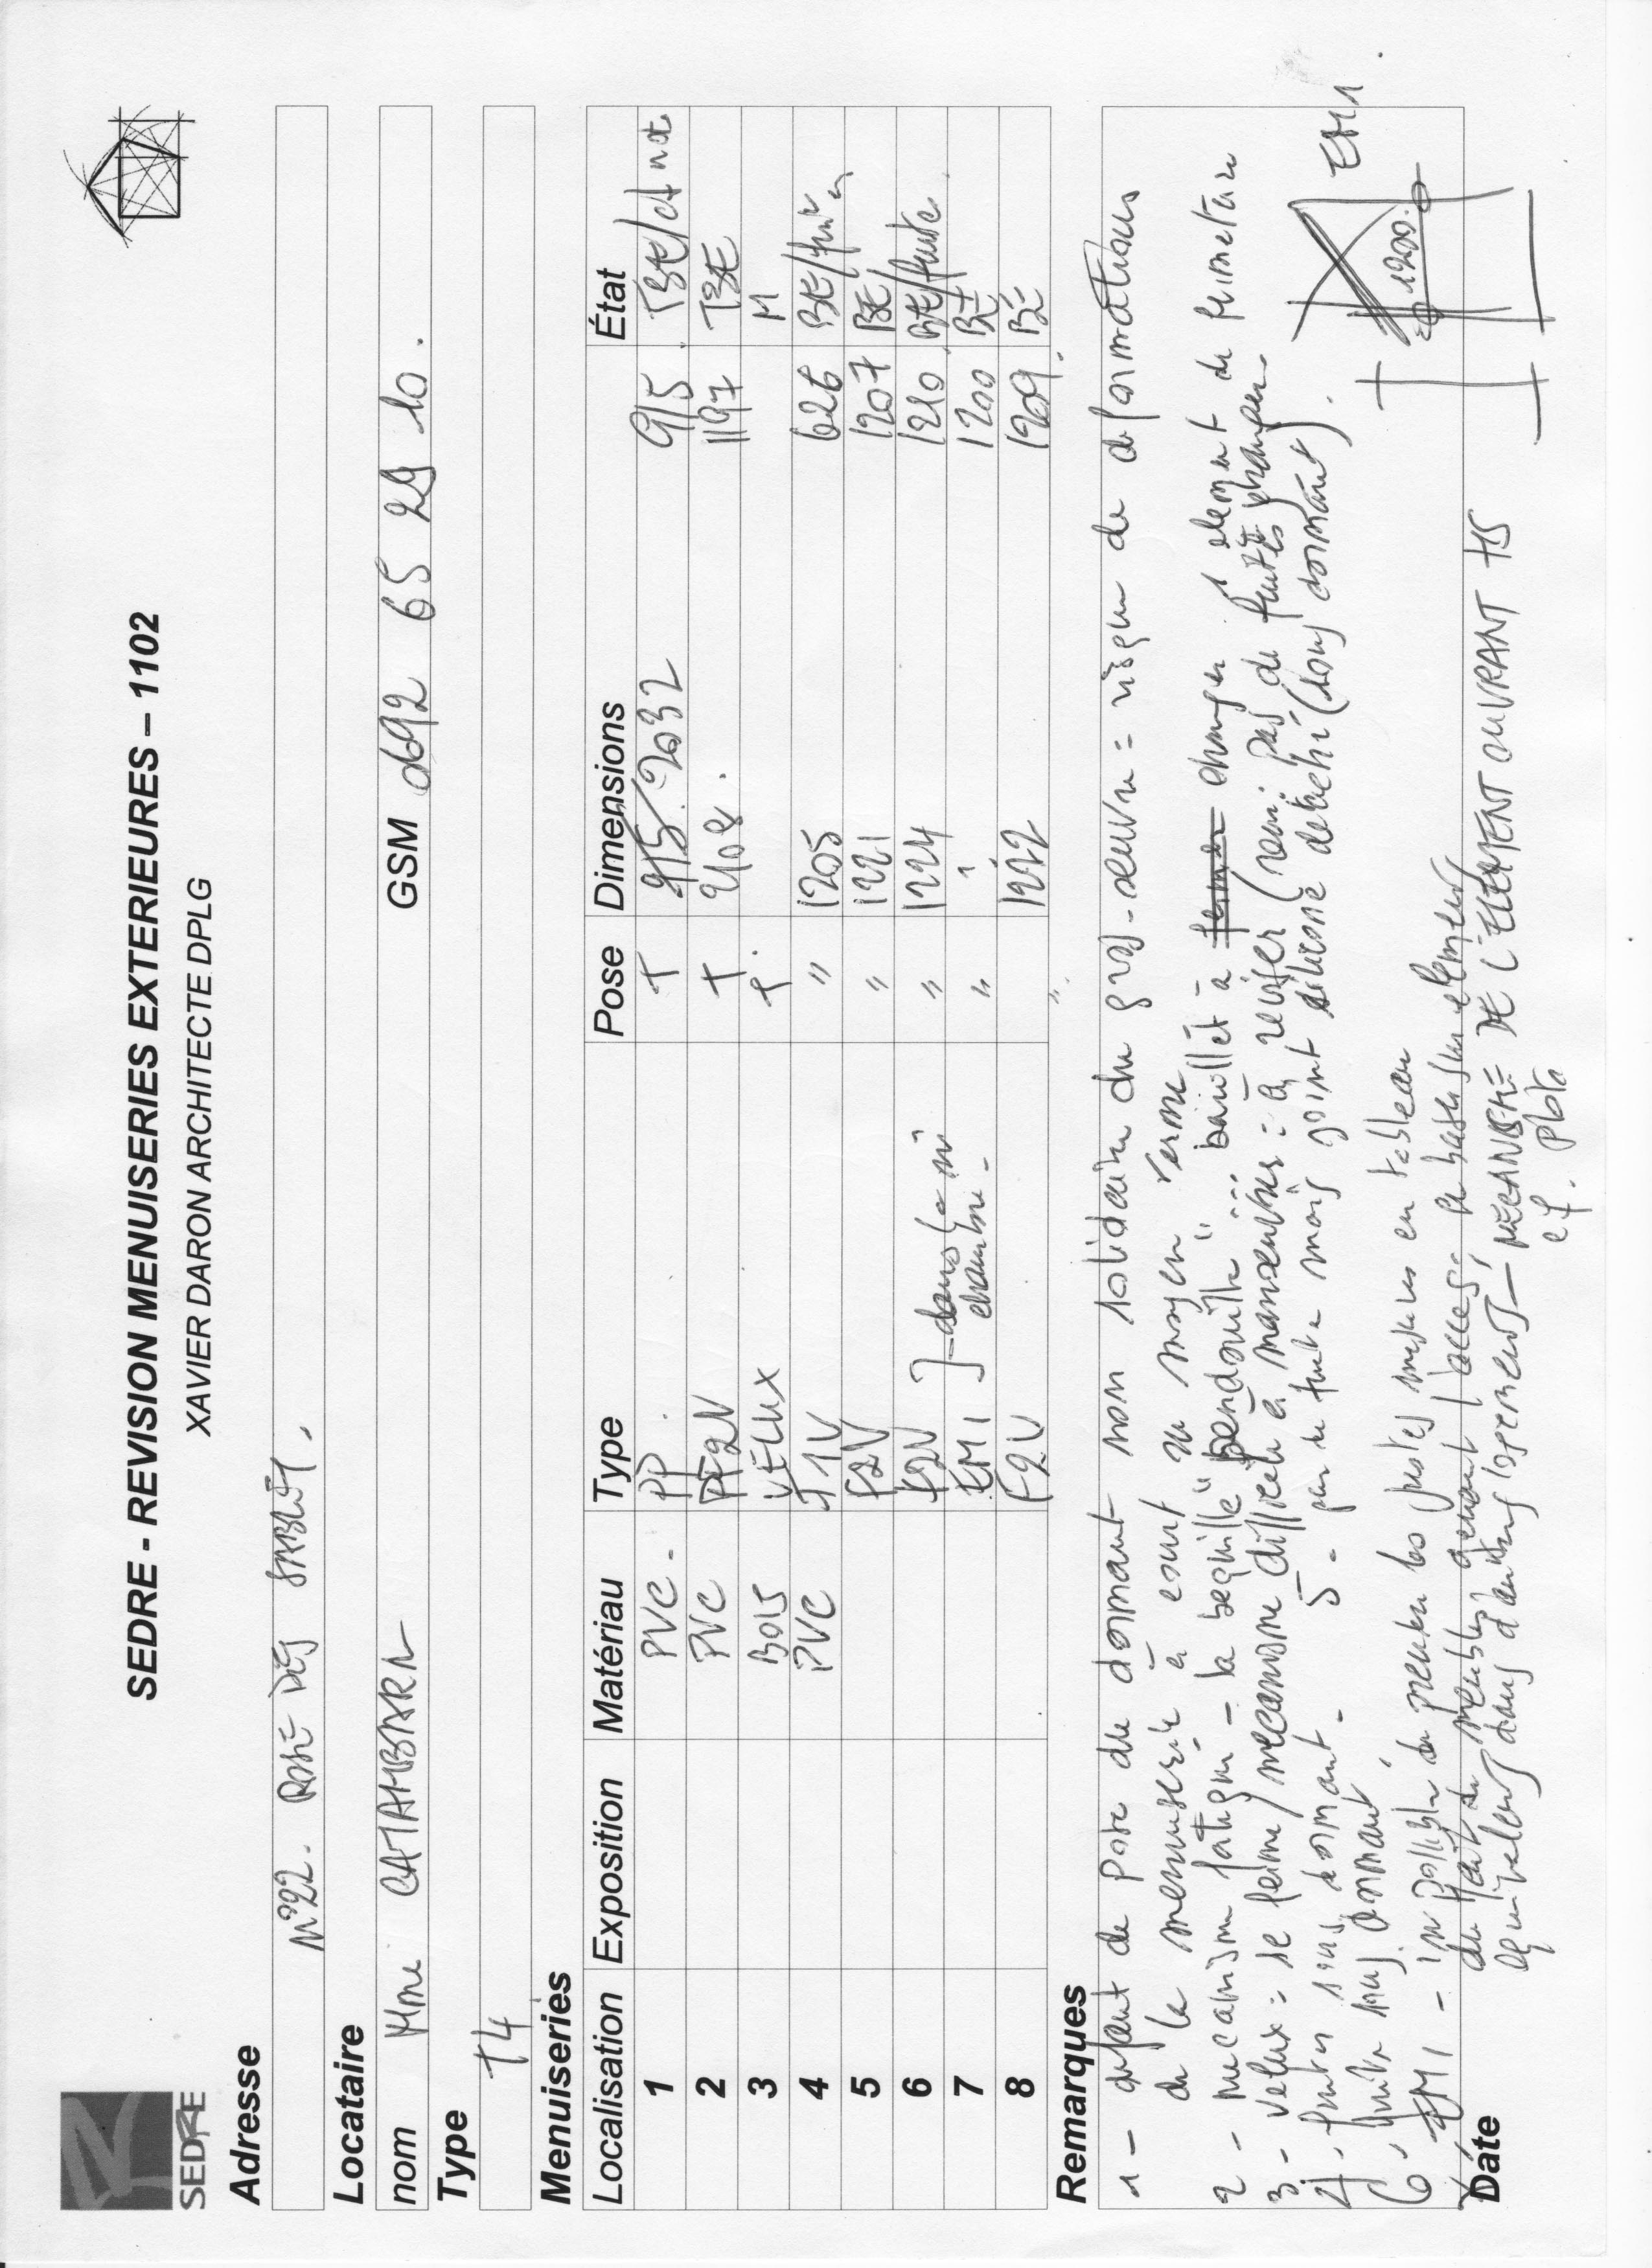 SEDRE
SEDRE - REVISION MENUISERIES EXTERIEURES – 1102
XAVIER DARON ARCHITECTE DPLG
Adresse
N°22.
Locataire
nom Mme GSM 0692 65 29 10.
Type
T4
Menuiseries
Localisation Exposition Matériau Type Pose Dimensions État
1 PVC - PP. T 915. 2032 915 TBE
2 PVC PF2V T 2108. 1197 TBE
3 BOIS VELUX T. M
4 PVC F1V " 1205 626 BE/fuite
5 F2V " 1221 1207 BE
6 F2V dans la " 1224 1210 BE/fuite
7 EM1 chambre - " " 1200 BE
8 F2V " 1222 1209. BE
Remarques
1 - défaut de pose du dormant non solidaire du gros-oeuvre = risque de déformations
de la menuiserie à court ou moyen terme
2 - mécanisme fatigué - la béquille "pendouille"... barillet à changer 1 élément de
3 - velux = se ferme / mécanisme difficile à manoeuvrer = à réviser (remi pas de fuites
4 - fuites sous dormant - 5 - pas de fuite mais joint silicone (sous dormant).
6 - fuite sous dormant
7 - EM1 - impossible de prendre les justes mesures en tableau
du fait de meubles gênant l'accès.
équivalent dans d'autres logements - MECANISME DE L'ELEMENT OUVRANT HS
cf. plota
1200. EM1
Date